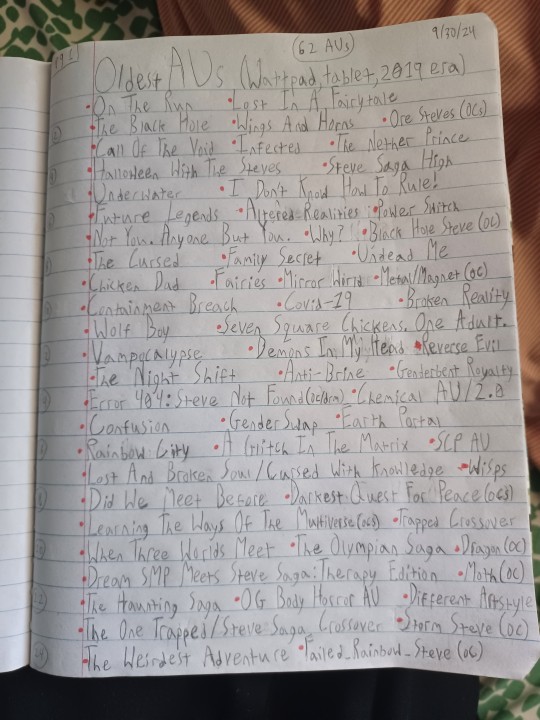 62 AUs
9/30/24
Oldest AUs (Wattpad, tablet, 2019 era)
•On The Run •Lost In A Fairytale
•The Black Hole •Wings And Horns •Ore Steves (OCs)
•Call Of The Void •Infested •The Nether Prince
•Halloween With The Steves •Steve Saga High
•Underwater •I Don't Know How To Rule!
•Future Legends •Altered Realities •Power Switch
•Not You. Anyone But You. •Why? •Black Hole Steve (OC)
•The Cursed •Family Secret •Undead Me
•Chicken Dad •Fairies •Mirror World •Metal/Magnet (OC)
•Containment Breach •Covid-19 •Broken Reality
•Wolf Boy •Seven Square Chickens. One Adult.
•Vampocalypse •Demons In My Head •Reverse Evil
•The Night Shift •Anti-Brine •Genderbent Royalty
•Error 404: Steve Not Found •Chemical AU/2.0
•Confusion •GenderSwap •Earth Portal
•Rainbow City •A Glitch In The Matrix •SCP AU
•Lost And Broken Soul/Cursed With Knowledge •Wisps
•Did We Meet Before •Darkest Quest For Peace (ocs)
•Learning The Ways Of The Multiverse (ocs) •Trapped Crossover
•When Three Worlds Meet •The Olympian Saga •Dragon (OC)
•Dream SMP Meets Steve Saga: Therapy Edition •Moth (OC)
•The Haunting Saga •OG Body Horror AU •Different Artstyle
•The One Trapped/Steve Saga Crossover •Storm Steve (OC)
•The Weirdest Adventure •Failed_Rainbow_Steve (OC)